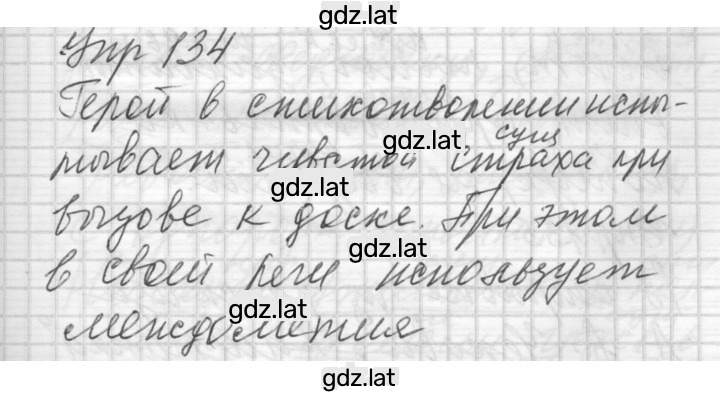 gdz.lat
Упр 134
Герой в стихотворении испы-
gdz.lat сущ
тывает страха при
gdz.lat
вызове к доске. При этом
gdz.lat
в своей речи использует
gdz.lat
междометия
gdz.lat